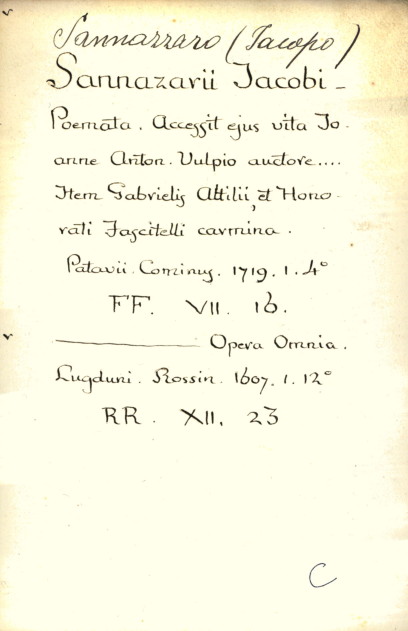 Sannazzaro (Jacopo)
Sannazarii Jacobi -
Poemata. Accessit ejus vita Jo-
anne Anton. Vulpio auctore....
Item Gabrielis Altilii, et Hono-
rati Fascitelli carmina.
Patavii. Cominus. 1719. 1. 4°
FF. VII. 16.
———— Opera Omnia.
Lugduni. Rossin. 1607. 1. 12°
RR. XII. 23
C